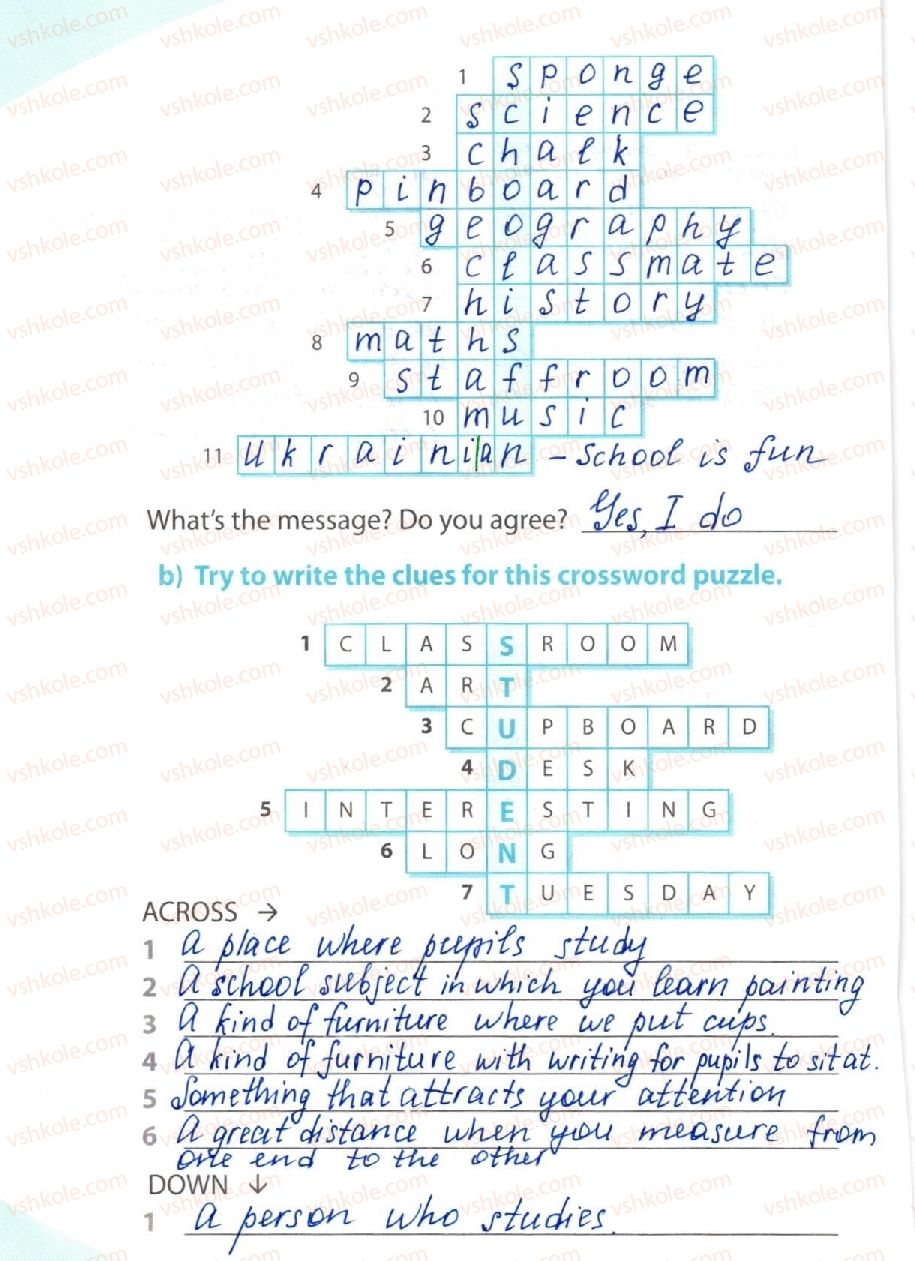 1 sponge
2 science
3 chalk
4 pinboard
5 geography
6 classmate
7 history
8 maths
9 staffroom
10 music
11 Ukrainian – School is fun
What's the message? Do you agree? Yes, I do
b) Try to write the clues for this crossword puzzle.
1 CLASSROOM
2 ART
3 CUPBOARD
4 DESK
5 INTERESTING
6 LONG
7 TUESDAY
ACROSS →
1 A place where pupils study
2 A school subject in which you learn painting
3 A kind of furniture where we put cups.
4 A kind of furniture with writing for pupils to sit at.
5 Something that attracts your attention
6 A great distance when you measure from
one end to the other
DOWN ↓
1 A person who studies.
vshkole.com